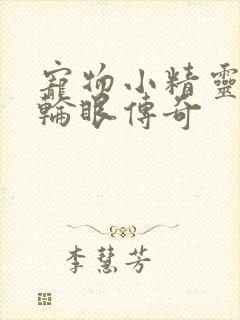 寵物小精靈
輪眼傳奇
李慧芳